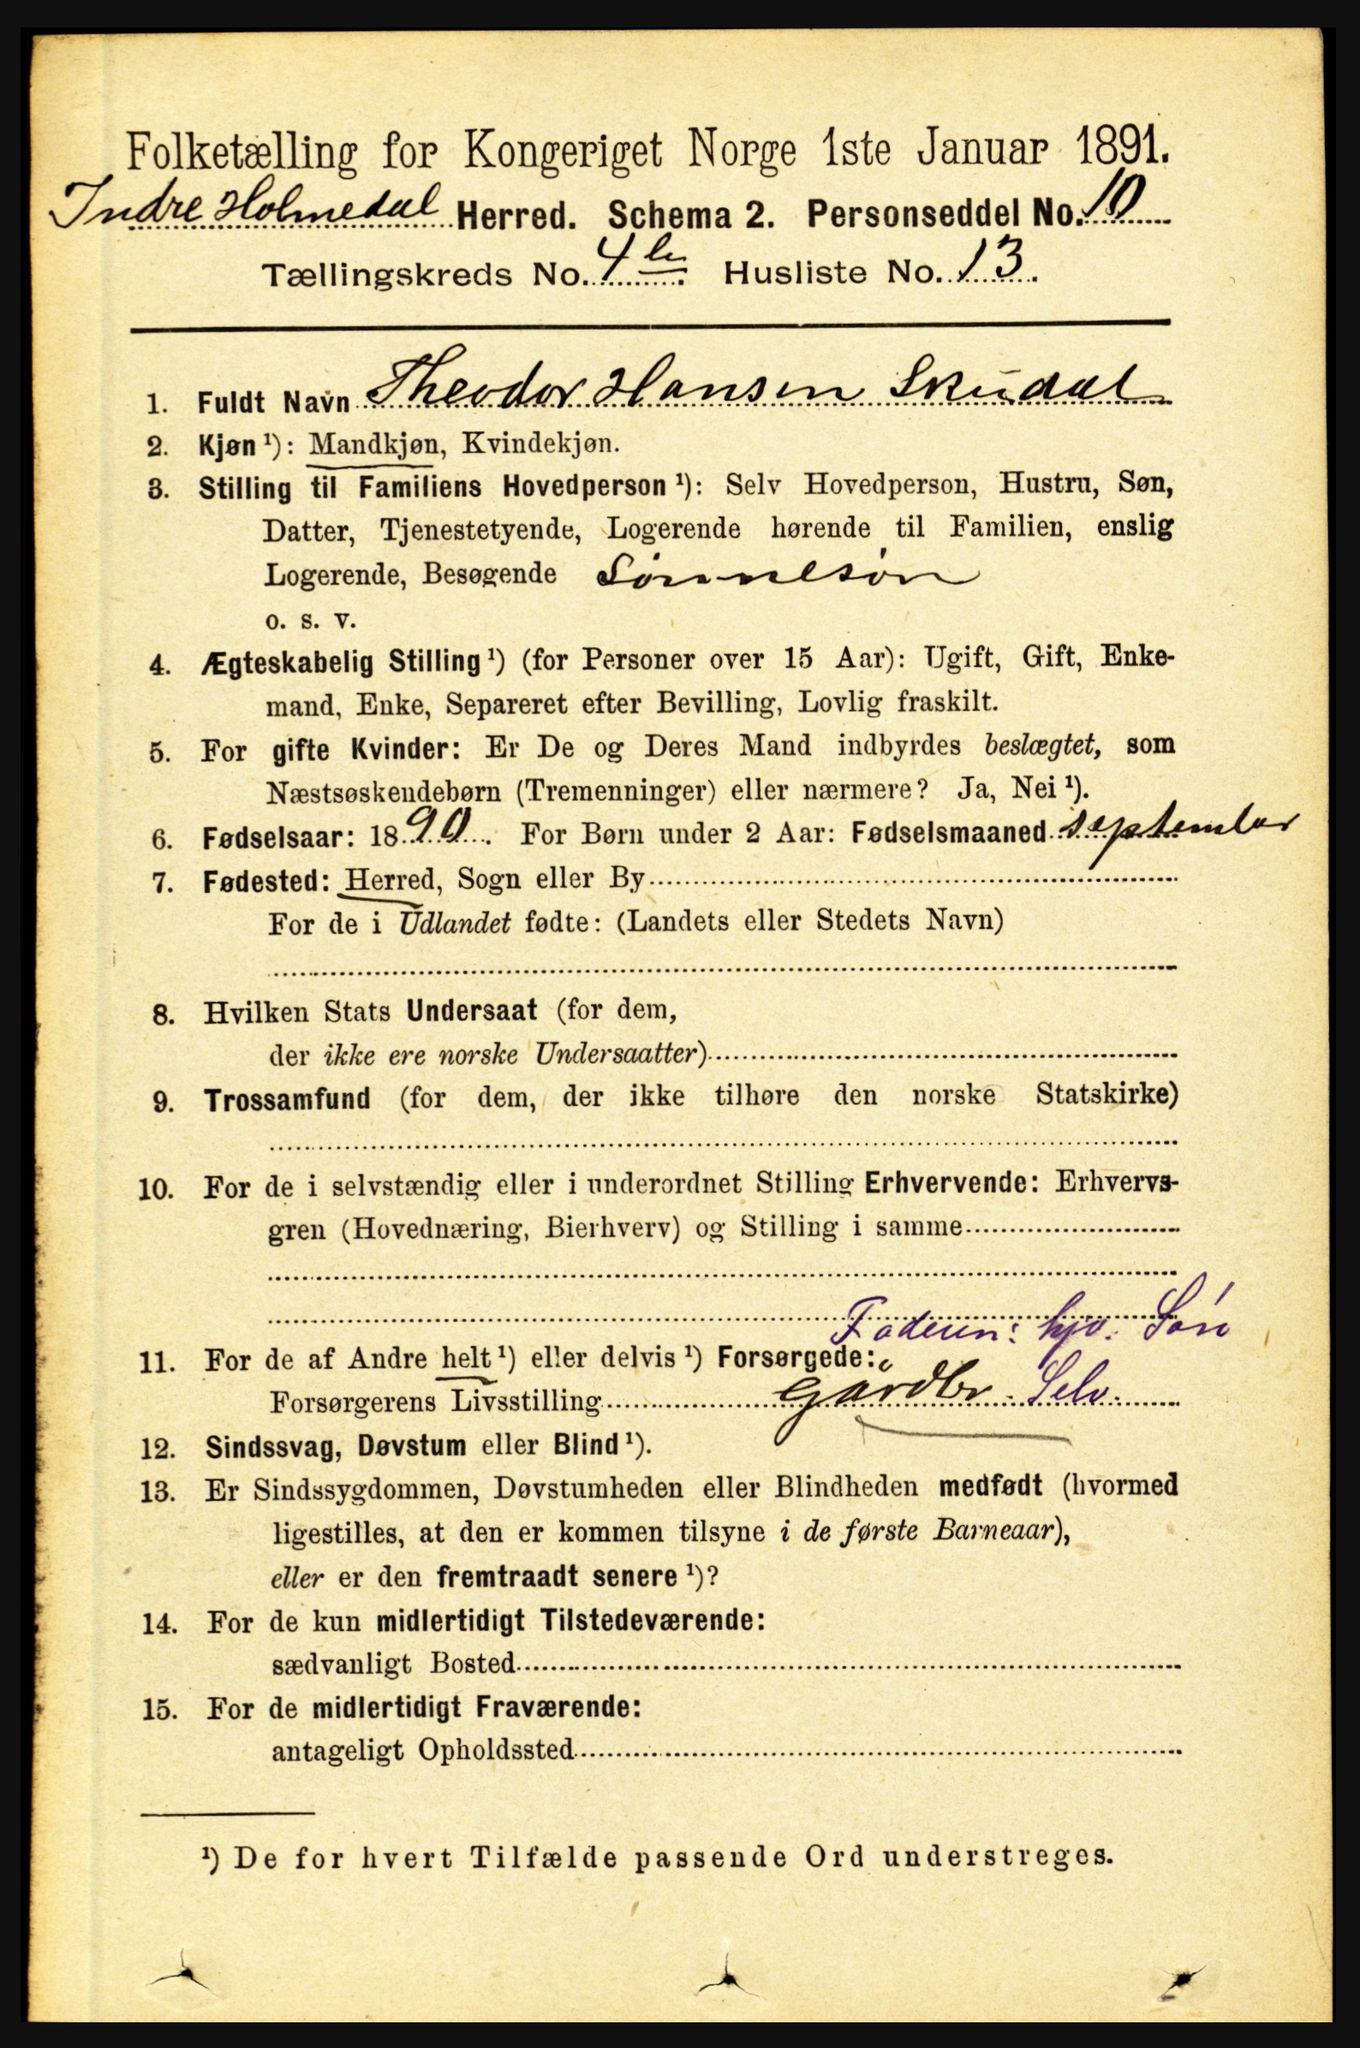 Folketælling for Kongeriget Norge 1ste Januar 1891.
Indre Holmedal Herred. Schema 2. Personseddel No. 10
Tællingskreds No. 4de. Husliste No. 13.
1. Fuldt Navn Theodor Hansen Skudal
2. Kjøn¹): Mandkjøn, Kvindekjøn.
3. Stilling til Familiens Hovedperson¹): Selv Hovedperson, Hustru, Søn,
Datter, Tjenestetyende, Logerende hørende til Familien, enslig
Logerende, Besøgende Sønnesøn
o. s. v.
4. Ægteskabelig Stilling¹) (for Personer over 15 Aar): Ugift, Gift, Enke-
mand, Enke, Separeret efter Bevilling, Lovlig fraskilt.
5. For gifte Kvinder: Er De og Deres Mand indbyrdes beslægtet, som
Næstsøskendebørn (Tremenninger) eller nærmere? Ja, Nei¹).
6. Fødselsaar: 1890. For Børn under 2 Aar: Fødselsmaaned september
7. Fødested: Herred, Sogn eller By
For de i Udlandet fødte: (Landets eller Stedets Navn)
8. Hvilken Stats Undersaat (for dem,
der ikke ere norske Undersaatter)
9. Trossamfund (for dem, der ikke tilhøre den norske Statskirke)
10. For de i selvstændig eller i underordnet Stilling Erhvervende: Erhvervs-
gren (Hovednæring, Bierhverv) og Stilling i samme
Faderen: hjv. Søn
11. For de af Andre helt¹) eller delvis¹) Forsørgede:
Forsørgerens Livsstilling Gårdbr. Selv.
12. Sindssvag, Døvstum eller Blind¹).
13. Er Sindssygdommen, Døvstumheden eller Blindheden medfødt (hvormed
ligestilles, at den er kommen tilsyne i de første Barneaar),
eller er den fremtraadt senere¹)?
14. For de kun midlertidigt Tilstedeværende:
sædvanligt Bosted
15. For de midlertidigt Fraværende:
antageligt Opholdssted
¹) De for hvert Tilfælde passende Ord understreges.